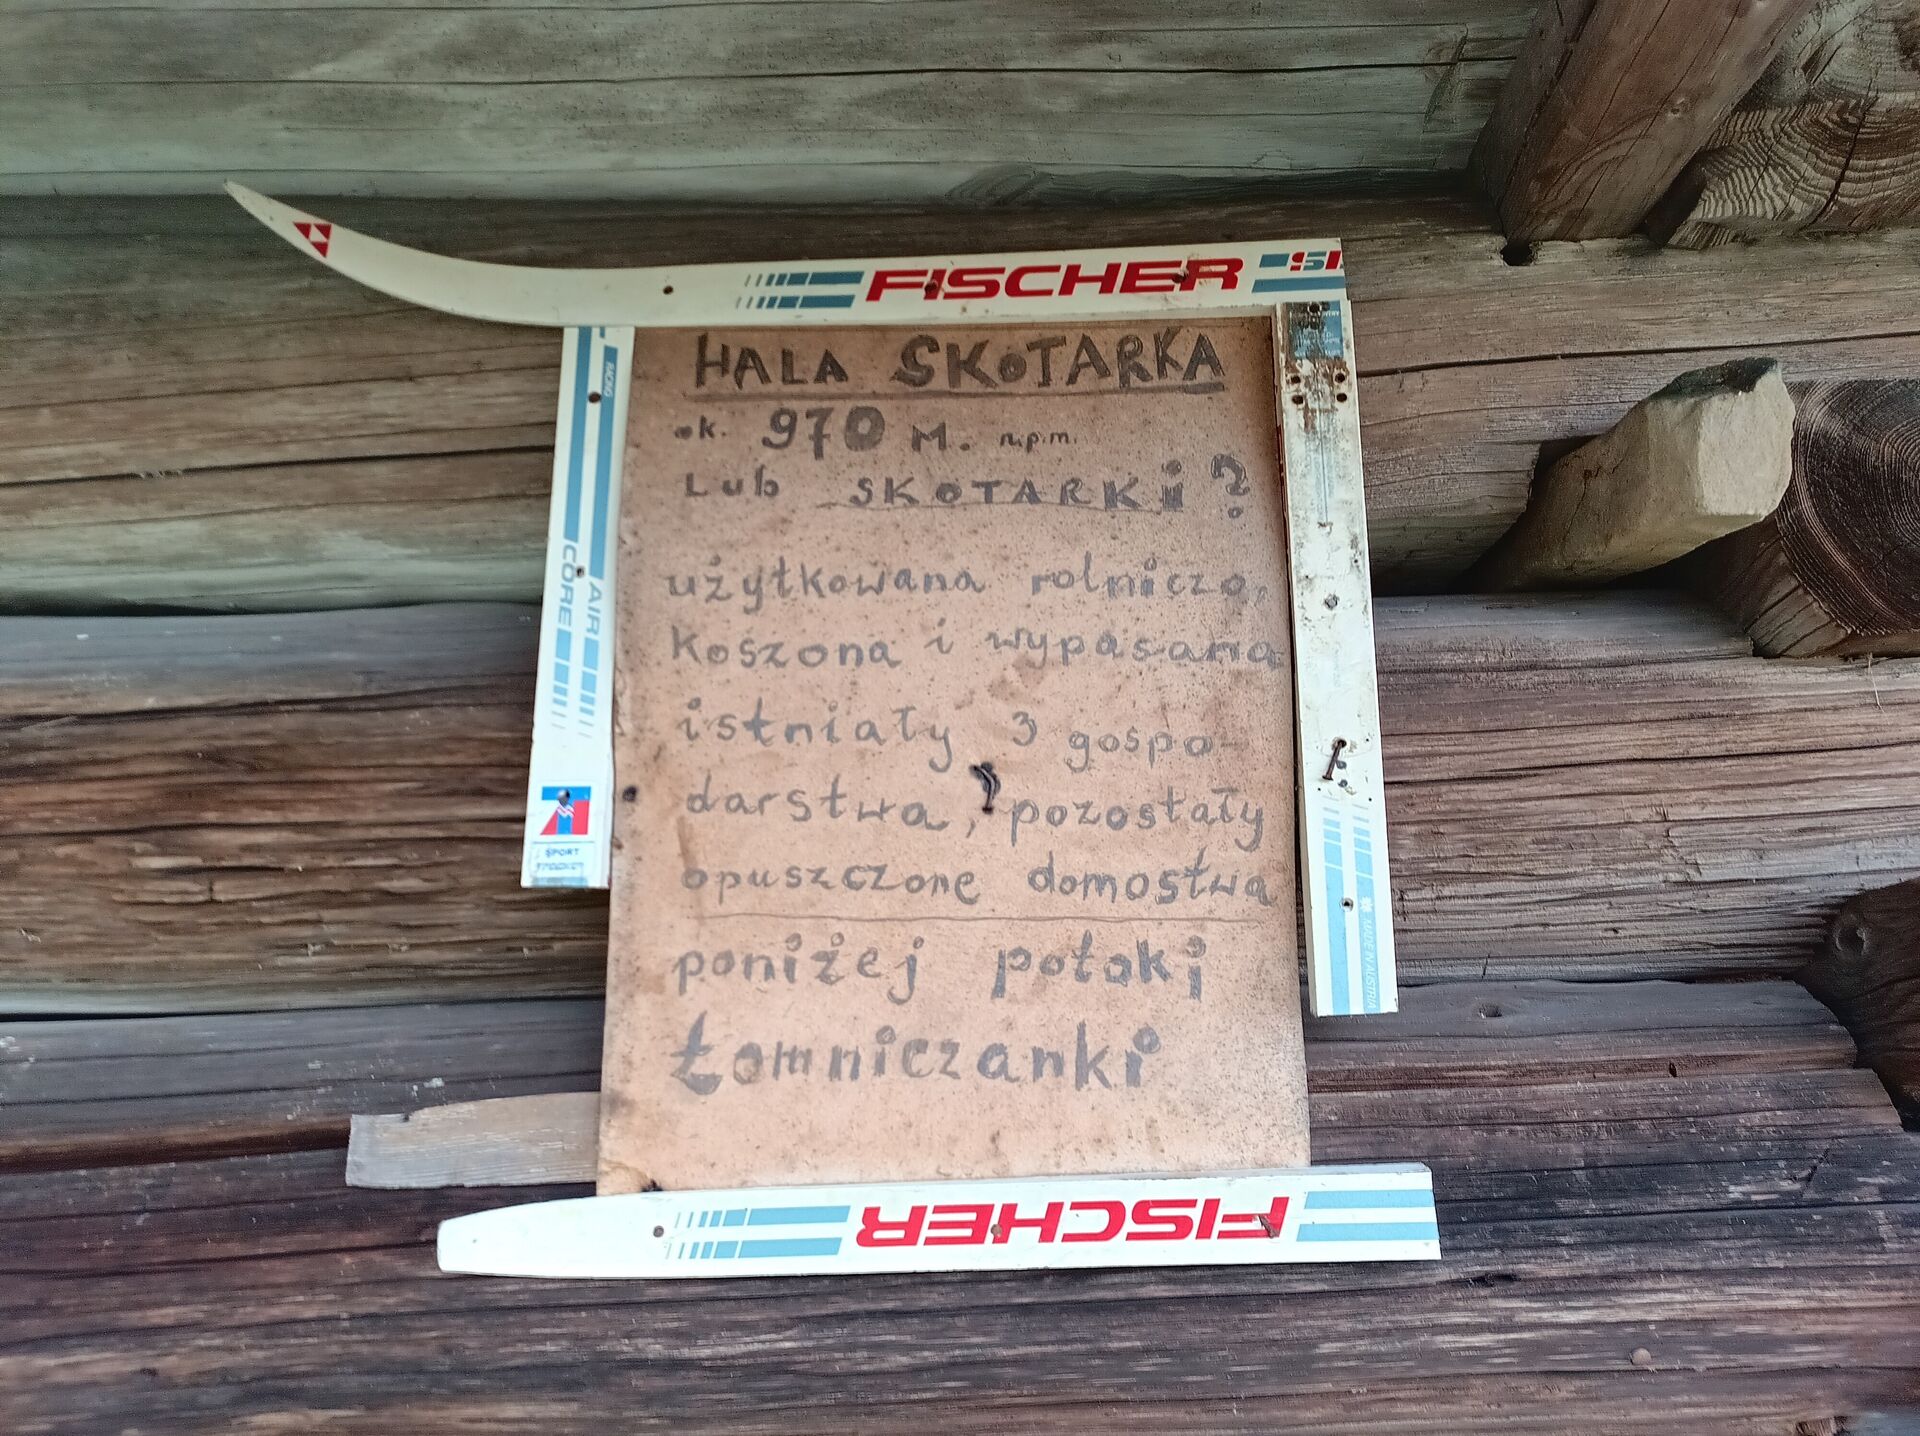 FISCHER SI
HALA SKOTARKA
ok. 970 M. n.p.m.
Lub SKOTARKi?
użytkowana rolniczo,
Koszona i wypasana
istniały 3 gospo
darstwa, pozostały
opuszczone domostwa
poniżej potoki
Łomniczanki
RACING
AIR
CORE
SPORT
MADE IN AUSTRIA
FISCHER